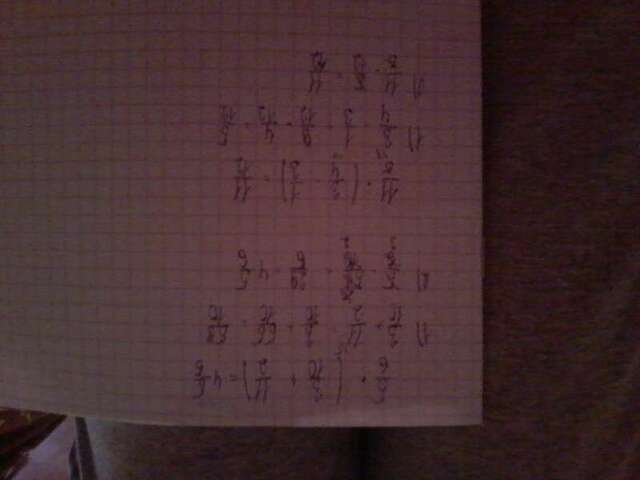 5/6 · (3/10 + 11/2) = 4 5/6
1) 3/10 + 11/2 = 3/10 + 55/10 = 58/10
2) 5/6 · 58/10 = 29/6 = 4 5/6
11/5 · (3/4 - 1/3) = 11/12
1) 3/4 - 1/3 = 9/12 - 4/12 = 5/12
2) 11/5 · 5/12 = 11/12